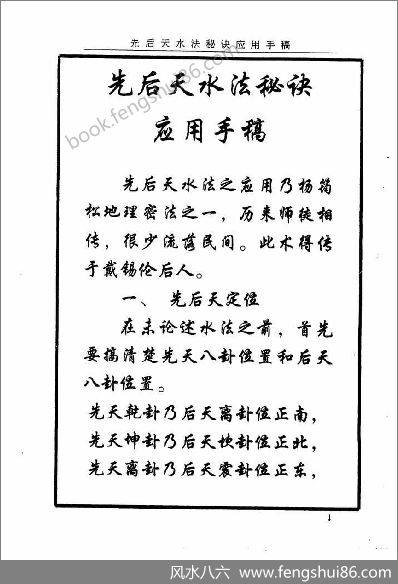 先后天水法秘诀应用手稿
先后天水法秘诀
应用手稿
先后天水法之应用乃杨筠
松地理密法之一，历来师徒相
传，很少流落民间。此术得传
于戴锡伦后人。
一、 先后天定位
在未论述水法之前，首先
要搞清楚先天八卦位置和后天
八卦位置。
先天乾卦乃后天离卦位正南，
先天坤卦乃后天坎卦位正北，
先天离卦乃后天震卦位正东，
1
book.fengshui86.com
风水八六 www.fengshui86.com